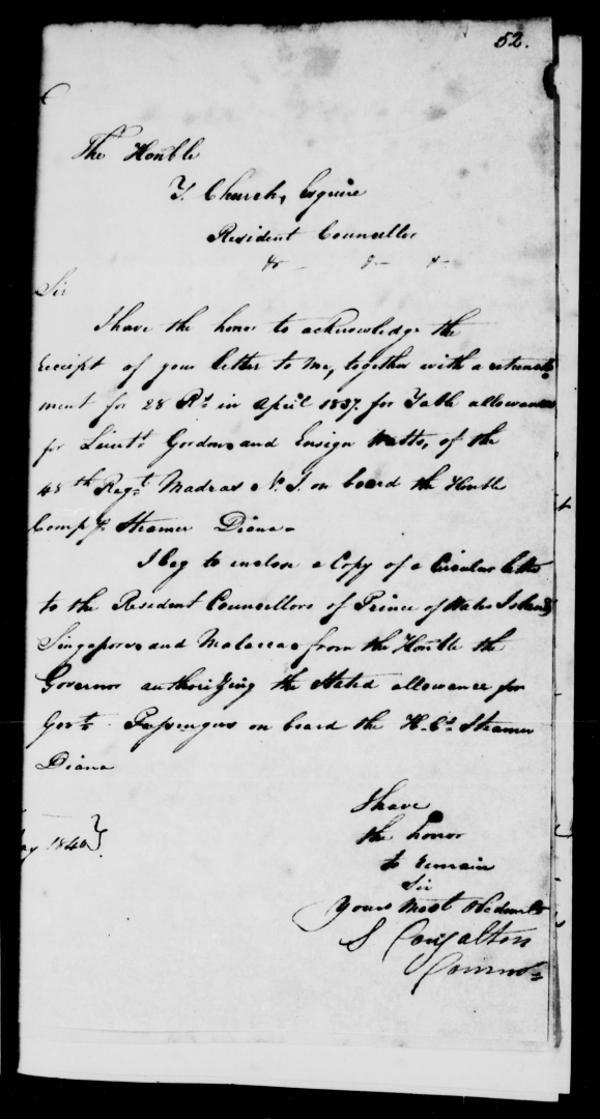 52.
The Honble
T. Church, Esquire
Resident Councillor
&c &c &c
Sir
I have the honor to acknowledge the
receipt of your letter to me, together with a retrench
ment for 28 Rs. in April 1837. for Table allowance
for Lieutt. Gordon, and Ensign Watts, of the
48th Regt. Madras N. I. on board the Honble
Comp's. Steamer Diana.
I beg to enclose a Copy of a Circular letter
to the Resident Councillors of Prince of Wales Island,
Singapore, and Malacca, from the Honble the
Governor authorizing the Stated allowance for
Govt. Passengers on board the H. Cs. Steamer
Diana
I have
the honor
to remain
Sir
Yours most Obedient
S Congalton
Comm
1840